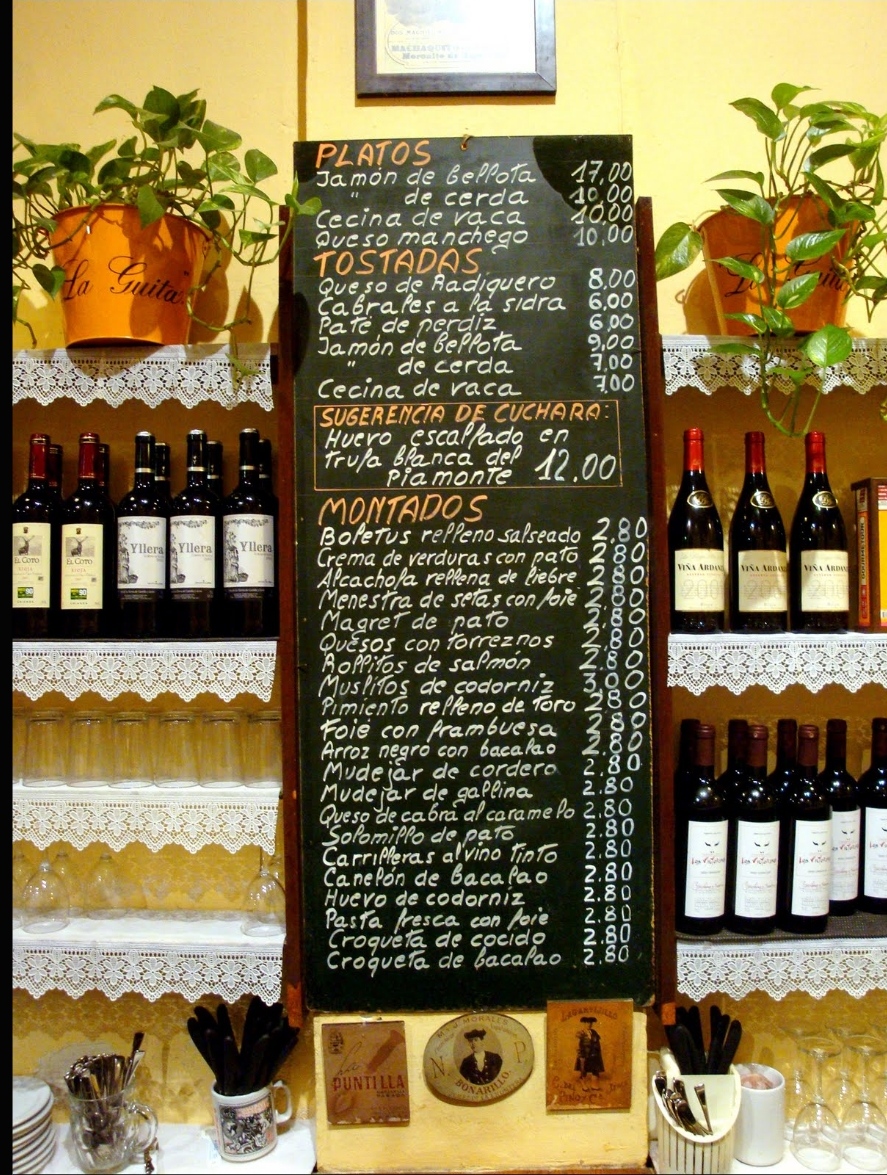 MACHAQUI
La Guita
La Guita
PLATOS
Jamón de bellota 17,00
" de cerda 10,00
Cecina de vaca 10,00
Queso manchego 10,00
TOSTADAS
Queso de Radiquero 8,00
Cabrales a la sidra 6,00
Paté de perdiz 6,00
Jamón de bellota 9,00
" de cerda 7,00
Cecina de vaca 7,00
SUGERENCIA DE CUCHARA:
Huevo escalfado en
trufa blanca del
piamonte 12.00
MONTADOS
Boletus relleno salseado 2.80
Crema de verduras con pato 2.80
Alcachofa rellena de liebre 2.80
Menestra de setas con foie 2.80
Magret de pato 2.80
Quesos con torreznos 2.80
Rollitos de salmón 2.80
Muslitos de codorniz 3.00
Pimiento relleno de toro 2.80
Foie con frambuesa 2.80
Arroz negro con bacalao 2.80
Mudejar de cordero 2.80
Mudejar de gallina 2.80
Queso de cabra al caramelo 2.80
Solomillo de pato 2.80
Carrilleras al vino tinto 2.80
Canelón de bacalao 2.80
Huevo de codorniz 2.80
Pasta fresca con foie 2.80
Croqueta de cocido 2.80
Croqueta de bacalao 2.80
EL COTO
EL COTO
Yllera
Yllera
Yllera
VIÑA ARDANZA
VIÑA ARDANZA
VIÑA ARDANZA
La
PUNTILLA
MORALES
N. P.
BONARILLO
LAGARTIJILLO